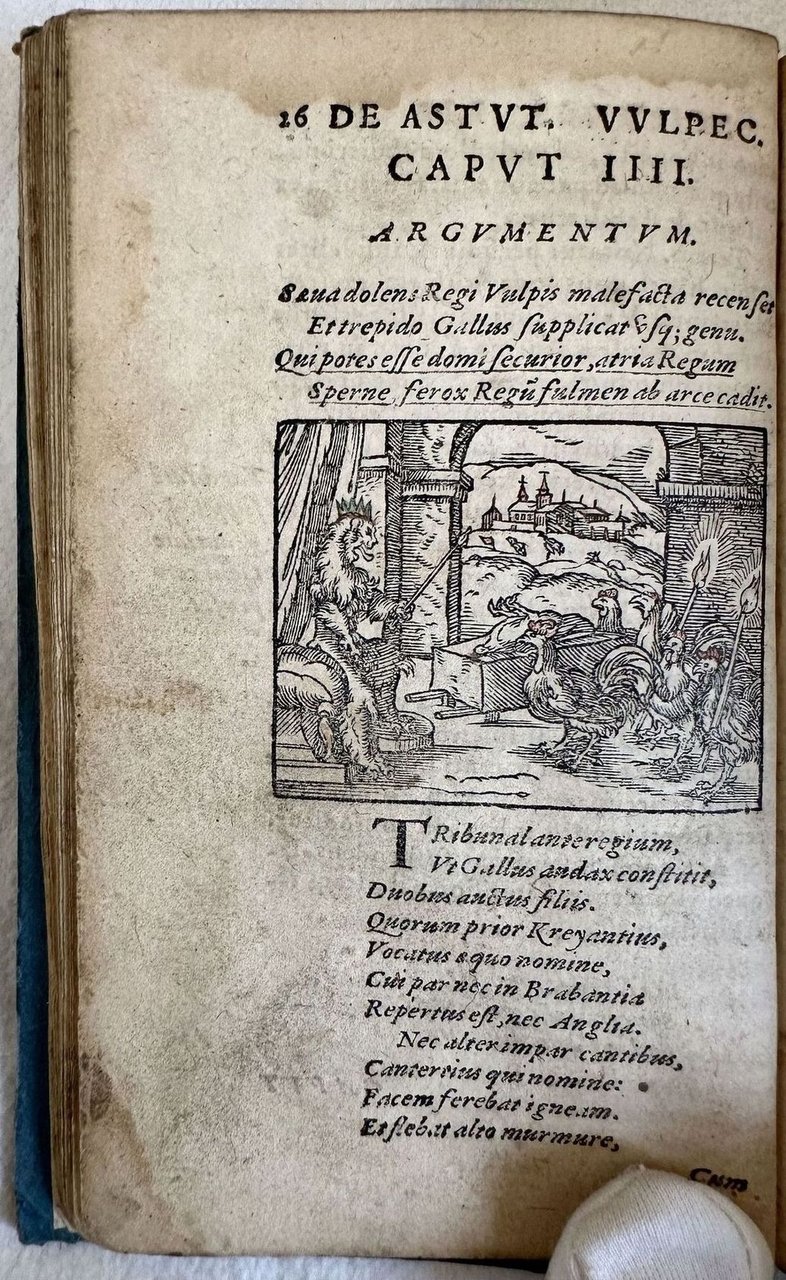 26 DE ASTVT. VVLPEC.
CAPVT IIII.
ARGVMENTVM.
Sæua dolens Regi Vulpis malefacta recenſet
Et trepido Gallus ſupplicat vſq; genu.
Qui potes eſſe domi ſecurior, atria Regum
Sperne, ferox Regū fulmen ab arce cadit.
TRibunal ante regium,
Vt Gallus audax conſtitit,
Duobus auctus filiis.
Quorum prior Kreyantius,
Vocatus æquo nomine,
Cui par nec in Brabantia
Repertus eſt, nec Anglia.
Nec alter impar cantibus,
Canterius qui nomine:
Facem ferebat igneam.
Et flebat alto murmure,
Cum